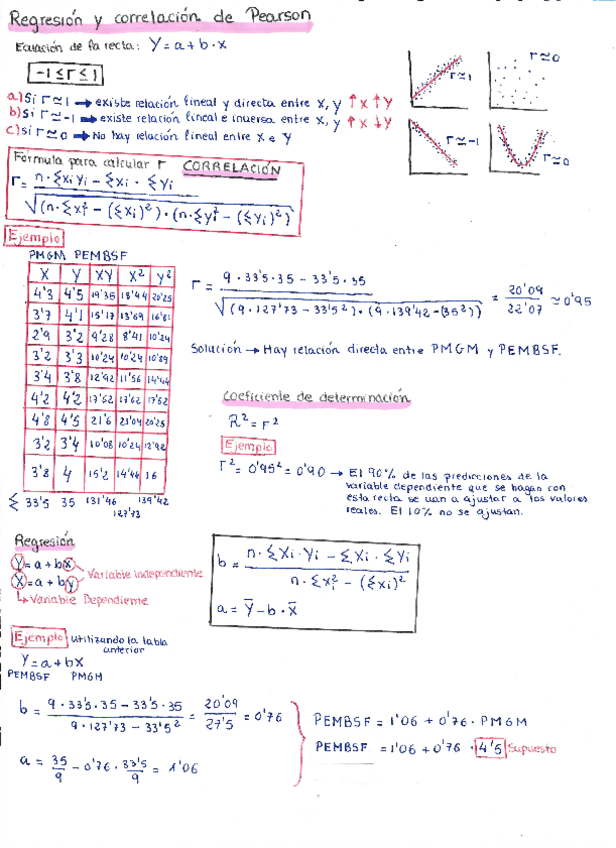 Regresión y correlación de Pearson
Ecuación de la recta: Y = a + b · x
-1 ≤ r ≤ 1
a) Si r ≃ 1 → existe relación lineal y directa entre x, y ↑x ↑y
b) Si r ≃ -1 → existe relación lineal e inversa entre x, y ↑x ↓y
c) si r ≃ 0 → No hay relación lineal entre x e y
r ≃ 1
r ≃ 0
r ≃ -1
r ≃ 0
Fórmula para calcular r CORRELACIÓN
r = n · Σxi yi - Σxi · Σyi / √(n · Σxi² - (Σxi)²) · (n · Σyi² - (Σyi)²)
Ejemplo
PMGM PEMBSF
X Y XY X² Y²
4'3 4'5 19'35 18'44 20'25
3'7 4'1 15'17 13'69 16'81
2'9 3'2 9'28 8'41 10'24
3'2 3'3 10'24 10'24 10'89
3'4 3'8 12'92 11'56 14'44
4'2 4'2 17'52 17'62 17'52
4'8 4'5 21'6 23'04 20'25
3'2 3'4 10'08 10'24 12'92
3'8 4 15'2 14'44 16
Σ 33'5 35 131'46 127'73 139'42
r = 9 · 33'5 · 35 - 33'5 · 35 / √(9 · 127'73 - 33'5²) · (9 · 139'42 - (35²)) = 20'09 / 22'07 ≃ 0'95
Solución → Hay relación directa entre PMGM y PEMBSF.
Coeficiente de determinación
R² = r²
Ejemplo
r² = 0'95² = 0'90 → El 90% de las predicciones de la
variable dependiente que se hagan con
esta recta se van a ajustar a los valores
reales. El 10% no se ajustan.
Regresión
Y = a + bx
X = a + by
Variable Independiente
Variable Dependiente
b = n · Σxi · yi - Σxi · Σyi / n · Σxi² - (Σxi)²
a = Y̅ - b · X̅
Ejemplo utilizando la tabla
anterior
Y = a + bX
PEMBSF PMGM
b = 9 · 33'5 · 35 - 33'5 · 35 / 9 · 127'73 - 33'5² = 20'09 / 27'5 = 0'76
a = 35/9 - 0'76 · 33'5/9 = 1'06
PEMBSF = 1'06 + 0'76 · PMGM
PEMBSF = 1'06 + 0'76 · 4'5 Supuesto